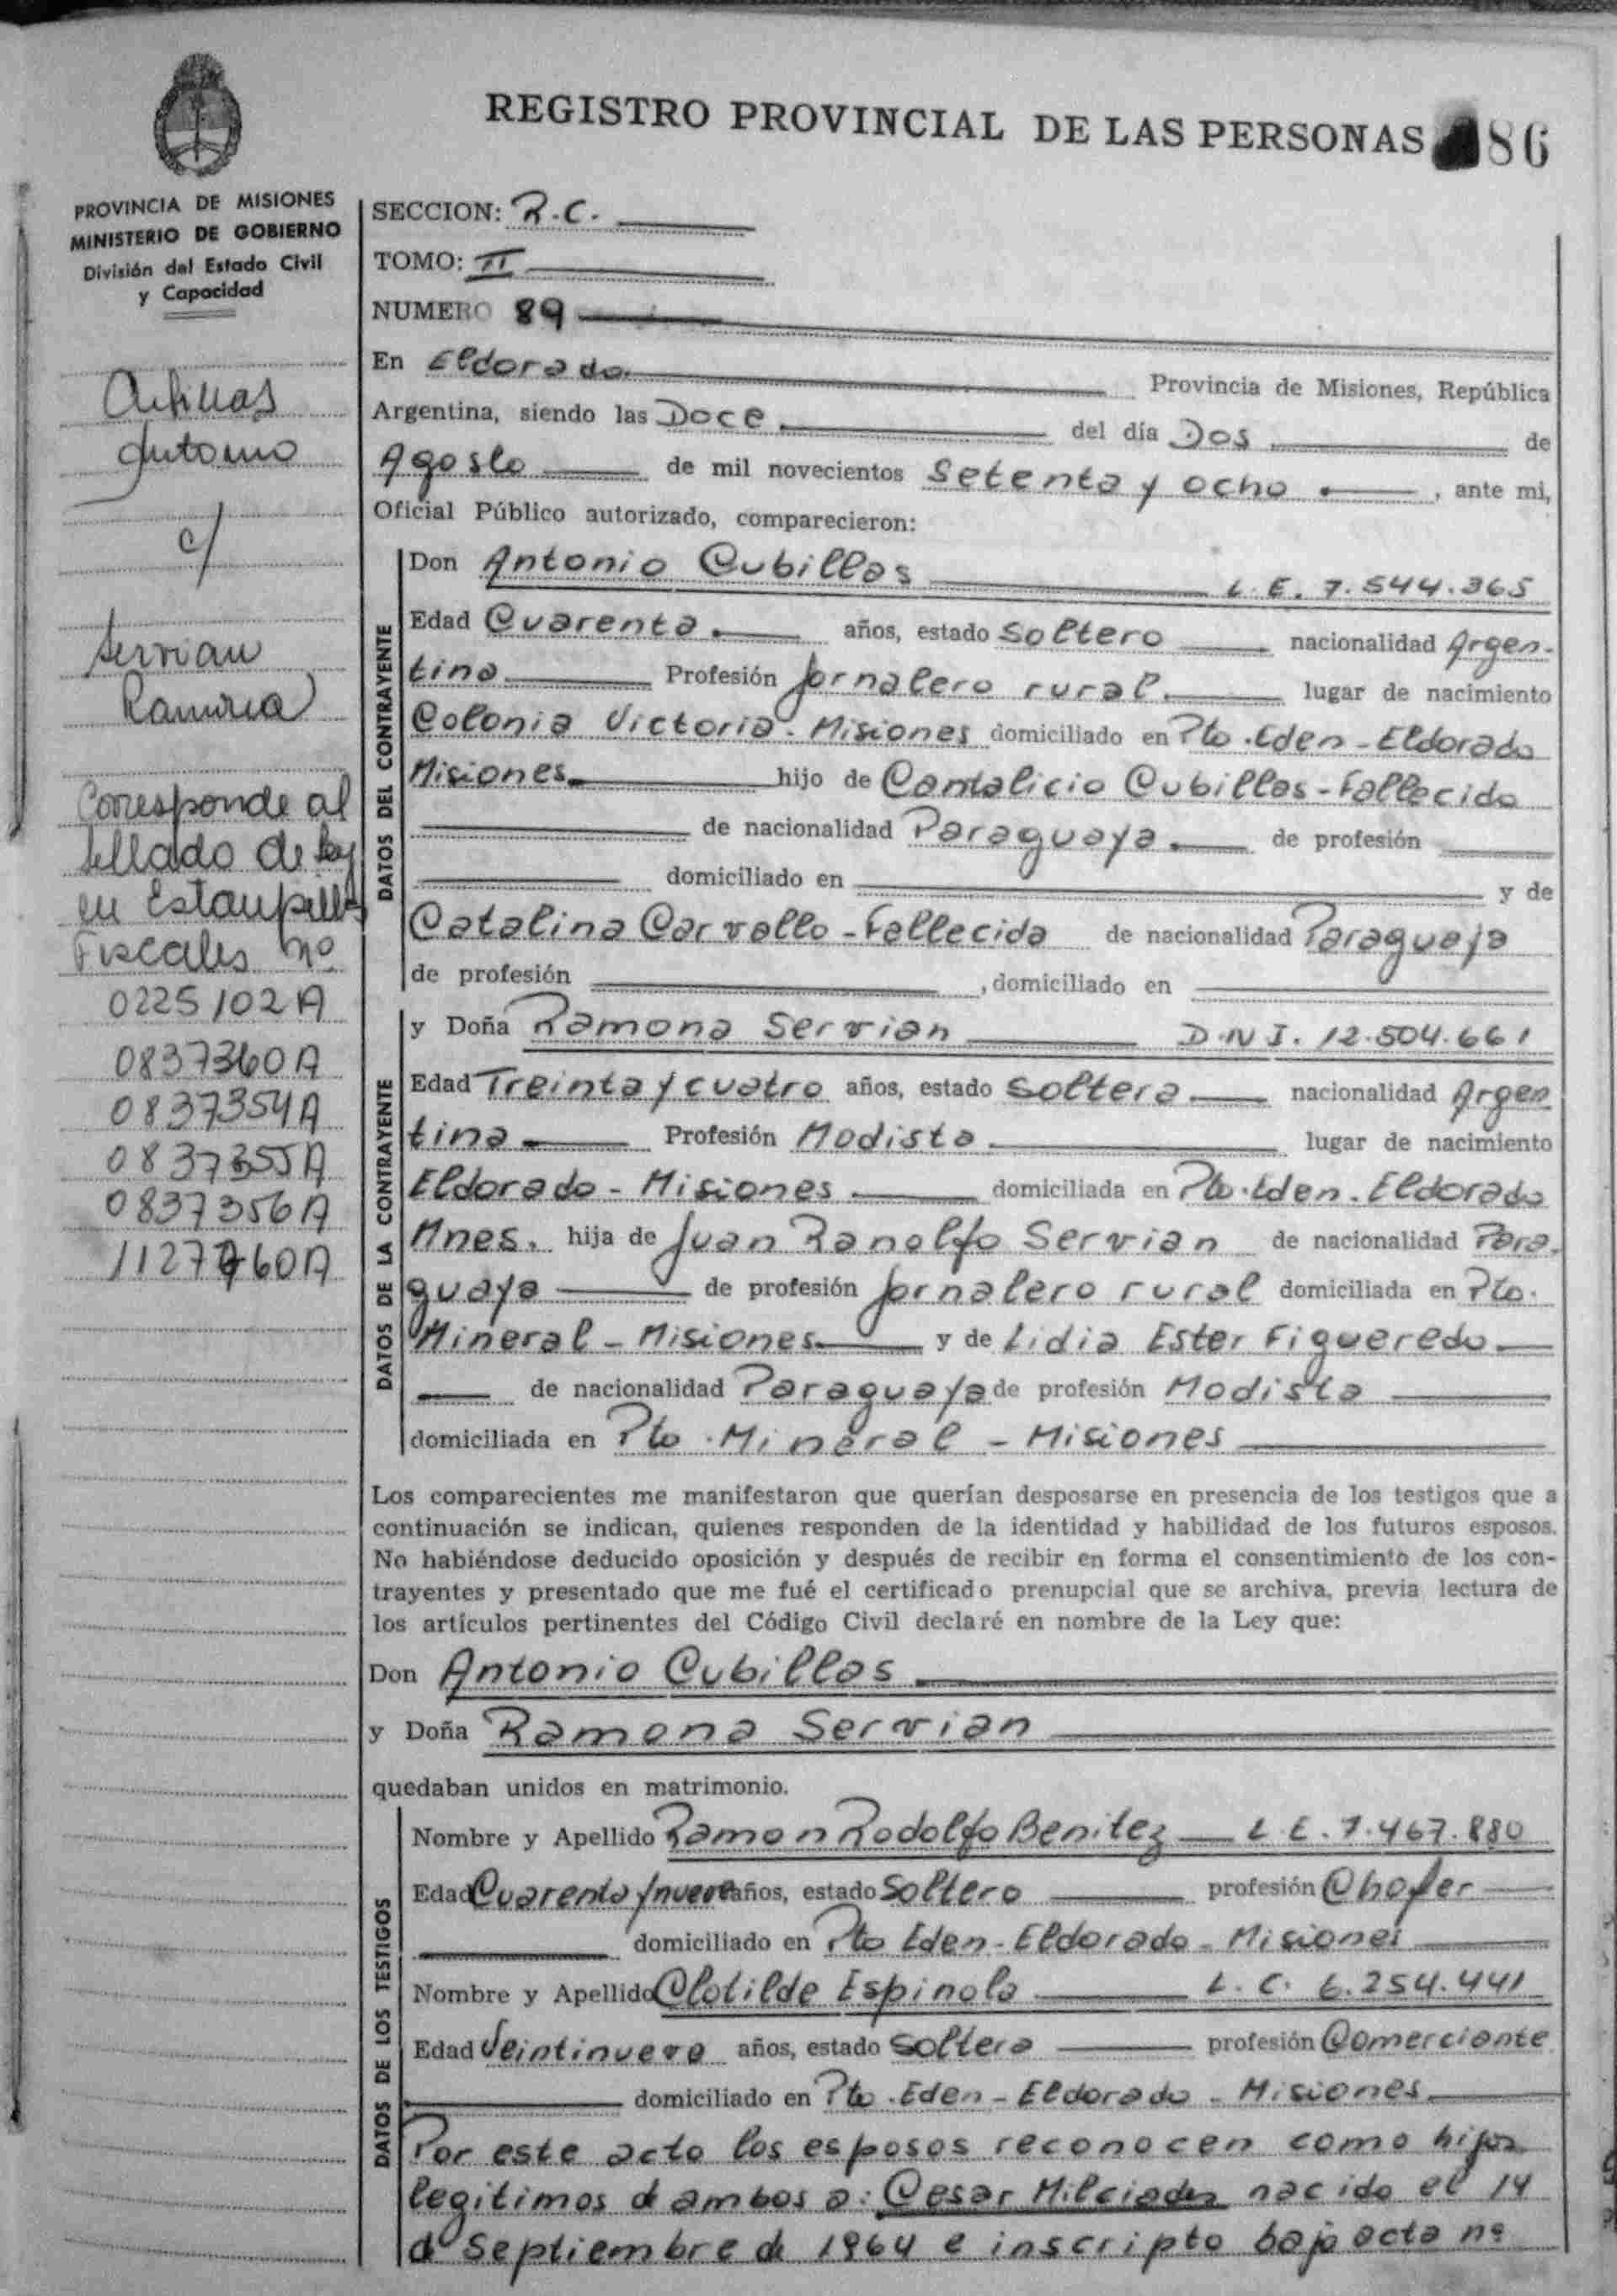 REGISTRO PROVINCIAL DE LAS PERSONAS 86
PROVINCIA DE MISIONES
MINISTERIO DE GOBIERNO
División del Estado Civil
y Capacidad
Cubillas
Antonio
c/
Servian
Ramona
Corresponde al
sellado de ley
en Estampillas
Fiscales nº
0225102A
0837360A
0837354A
0837355A
0837356A
SECCION: R.C.
TOMO: II
NUMERO 89
En Eldorado. Provincia de Misiones, República
Argentina, siendo las Doce del día Dos de
Agosto de mil novecientos Setenta y ocho , ante mi,
Oficial Público autorizado, comparecieron:
DATOS DEL CONTRAYENTE
Don Antonio Cubillas L.E. 7.544.365
Edad Cuarenta años, estado Soltero nacionalidad Argen-
tina Profesión Jornalero rural lugar de nacimiento
Colonia Victoria - Misiones domiciliado en Pto. Eden - Eldorado
Misiones hijo de Cantalicio Cubillas - Fallecido
de nacionalidad Paraguaya de profesión
domiciliado en y de
Catalina Carvallo - Fallecida de nacionalidad Paraguaya
de profesión , domiciliado en
DATOS DE LA CONTRAYENTE
y Doña Ramona Servian D.N.I. 12.504.661
Edad Treinta y cuatro años, estado soltera nacionalidad Argen
tina Profesión Modista lugar de nacimiento
Eldorado - Misiones domiciliada en Pto. Eden. Eldorado
Mnes. hija de Juan Ranolfo Servian de nacionalidad Para.
guaya de profesión Jornalero rural domiciliada en Pto.
Mineral - Misiones y de Lidia Ester Figueredo
de nacionalidad Paraguaya de profesión Modista
domiciliada en Pto. Mineral - Misiones
Los comparecientes me manifestaron que querían desposarse en presencia de los testigos que a
continuación se indican, quienes responden de la identidad y habilidad de los futuros esposos.
No habiéndose deducido oposición y después de recibir en forma el consentimiento de los con-
trayentes y presentado que me fué el certificado prenupcial que se archiva, previa lectura de
los artículos pertinentes del Código Civil declaré en nombre de la Ley que:
Don Antonio Cubillas
y Doña Ramona Servian
quedaban unidos en matrimonio.
DATOS DE LOS TESTIGOS
Nombre y Apellido Ramon Rodolfo Benitez L.E. 7.467.880
Edad Cuarenta y nueve años, estado Soltero profesión Chofer
domiciliado en Pto Eden - Eldorado - Misiones
Nombre y Apellido Clotilde Espinola L.C. 6.254.441
Edad Veintinueve años, estado soltera profesión Comerciante
domiciliado en Pto. Eden - Eldorado - Misiones
Por este acto los esposos reconocen como hijos
legitimos de ambos a: Cesar Milciades nacido el 14
de Septiembre de 1964 e inscripto bajo acta nº